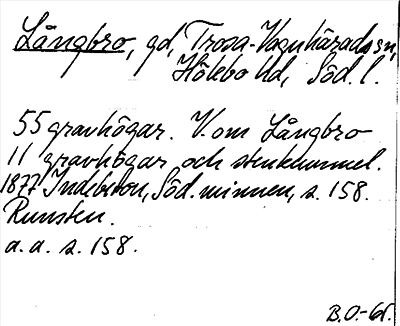 Långbro, gd, Trosa-Vagnhärads sn,
Hölebo hd, Söd. l.
55 gravhögar. V. om Långbro
11 gravhögar och stenkummel.
1877 Indebetou, Söd. minnen, s. 158.
Runsten.
a. a. s. 158.
B.O.-65.